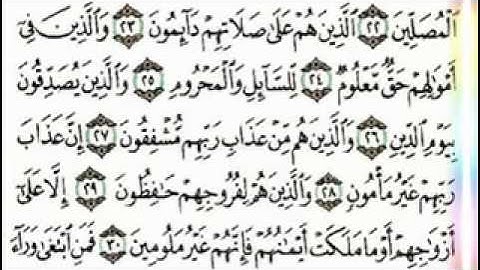 ٱلۡمُصَلِّينَ ٢٢ ٱلَّذِينَ هُمۡ عَلَىٰ صَلَاتِهِمۡ دَآئِمُونَ ٢٣ وَٱلَّذِينَ فِيٓ
أَمۡوَٰلِهِمۡ حَقّٞ مَّعۡلُومٞ ٢٤ لِّلسَّآئِلِ وَٱلۡمَحۡرُومِ ٢٥ وَٱلَّذِينَ يُصَدِّقُونَ
بِيَوۡمِ ٱلدِّينِ ٢٦ وَٱلَّذِينَ هُم مِّنۡ عَذَابِ رَبِّهِم مُّشۡفِقُونَ ٢٧ إِنَّ عَذَابَ
رَبِّهِمۡ غَيۡرُ مَأۡمُونٖ ٢٨ وَٱلَّذِينَ هُمۡ لِفُرُوجِهِمۡ حَٰفِظُونَ ٢٩ إِلَّا عَلَىٰٓ
أَزۡوَٰجِهِمۡ أَوۡ مَا مَلَكَتۡ أَيۡمَٰنُهُمۡ فَإِنَّهُمۡ غَيۡرُ مَلُومِينَ ٣٠ فَمَنِ ٱبۡتَغَىٰ وَرَآءَ